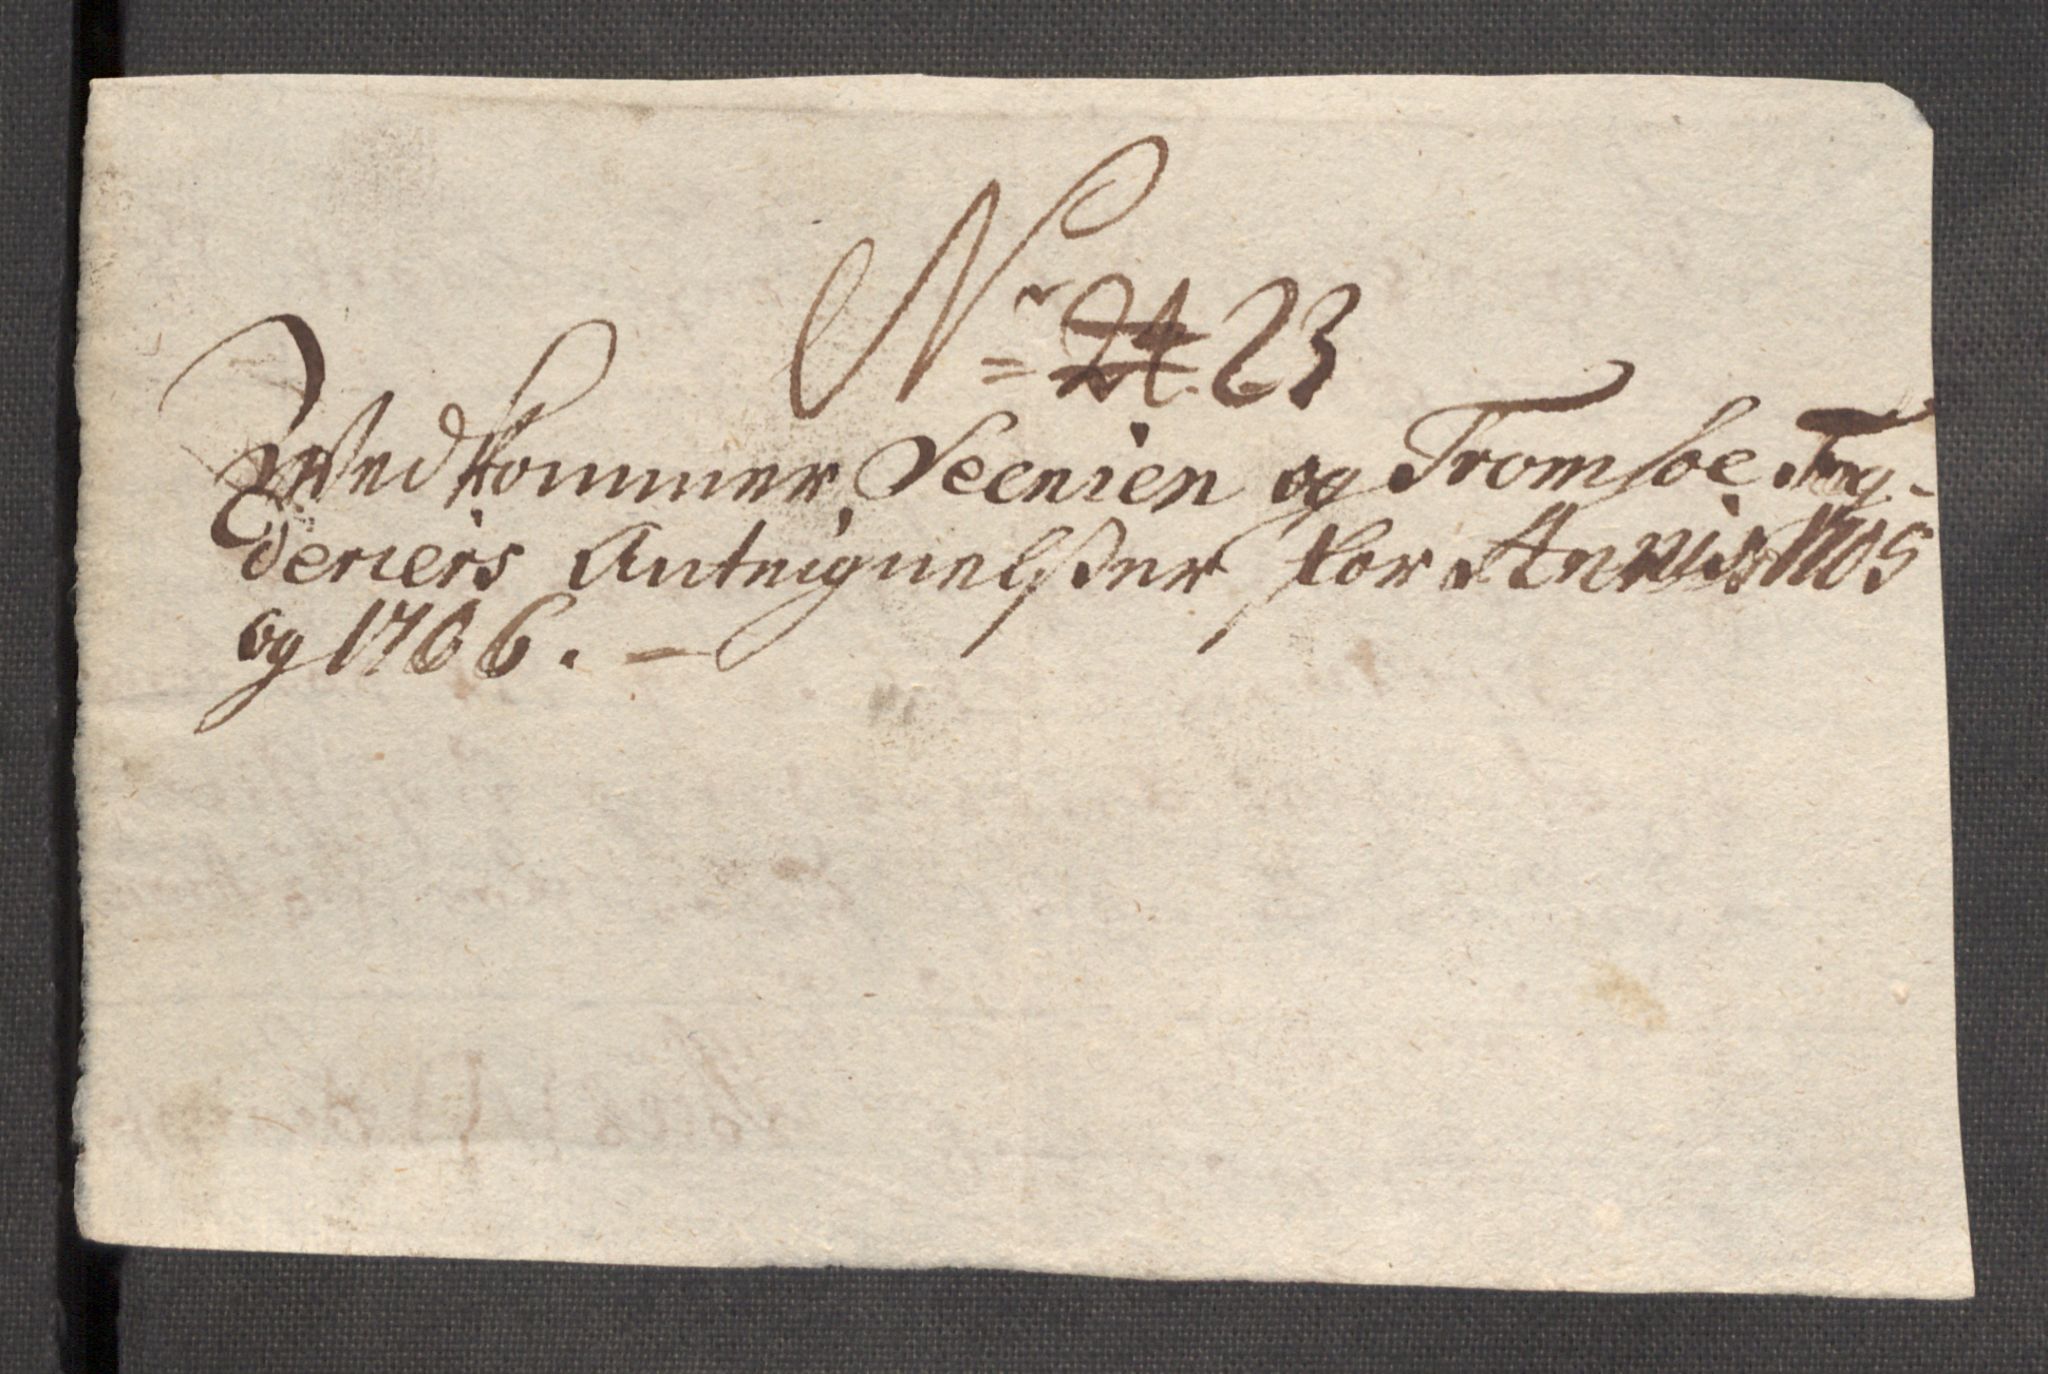 Nr 24. 23
Wedkommer Seenien og Tromsøe Fog-
deriers Anteignelsser for Annis 1705
og 1706.